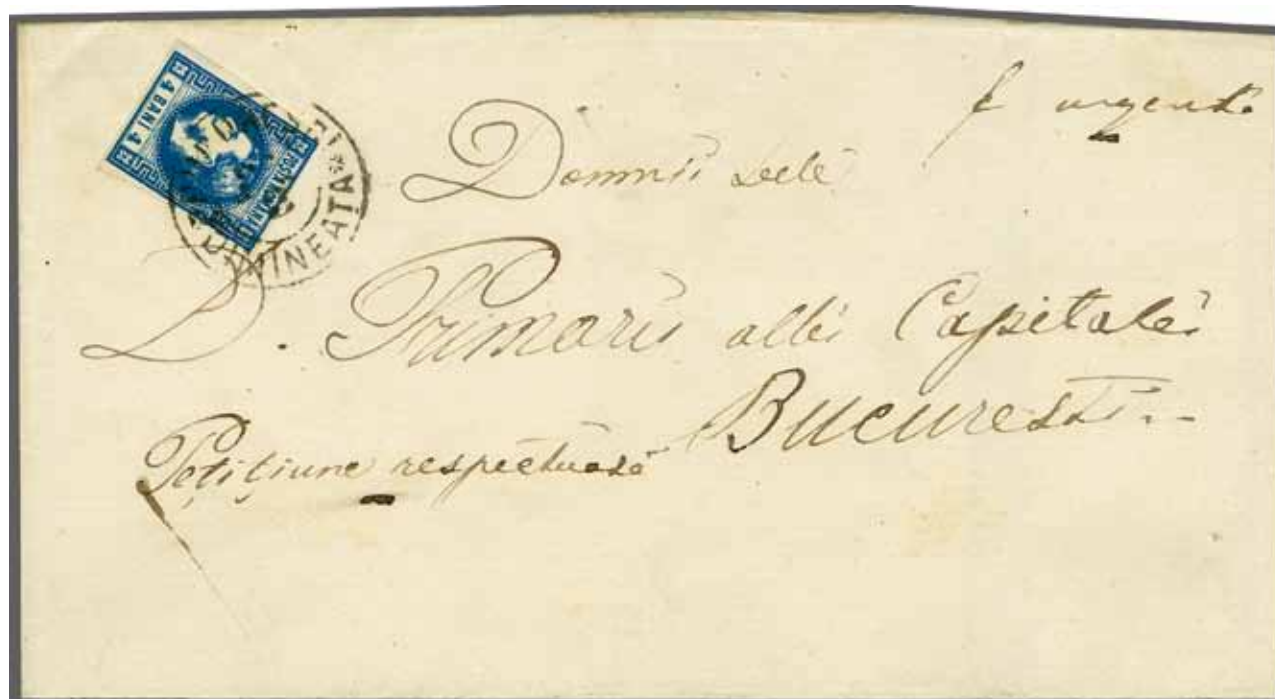 f urgentă
Domnii Sele
D. Primariu allŭ Capitalei
Bucuresti
Petiţiune respectuosă
4 BANI 4
POSTA ROMANA
DIMINEATA